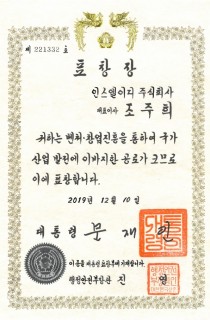 제 221332 호
표 창 장
인스엘이지 주식회사
대표이사 조 주 희
귀하는 벤처·창업진흥을 통하여 국가
산업 발전에 이바지한 공로가 크므로
이에 표창합니다.
2019년 12월 10일
대통령 문 재 인
이 증을 대통령 표창부에 기입합니다.
행정안전부장관 진 영